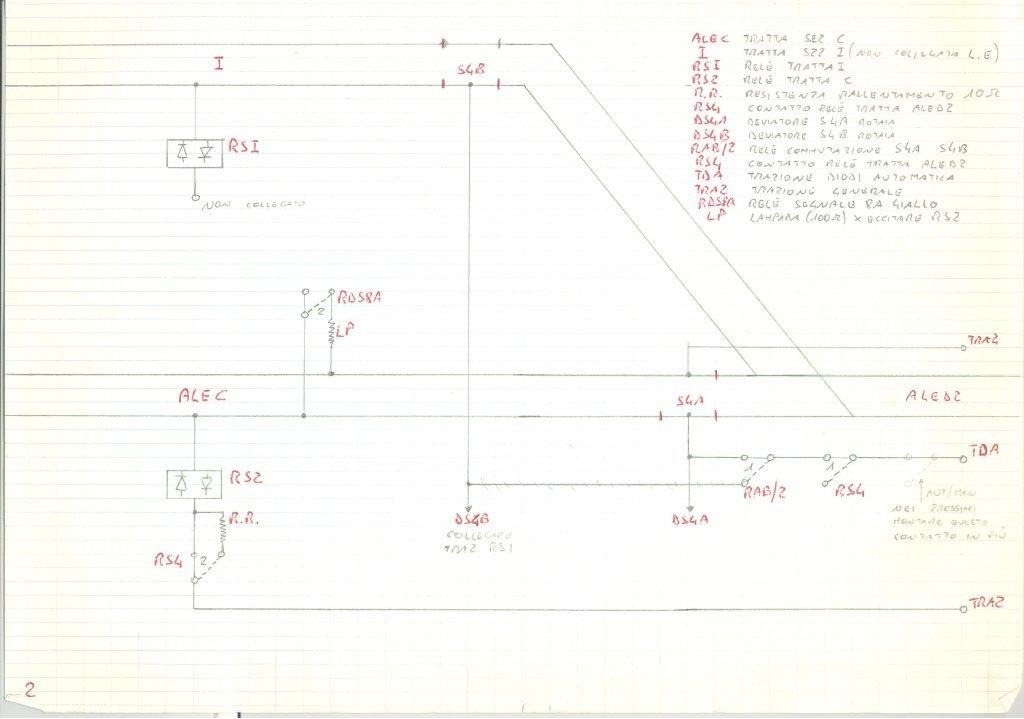 ALEC TRATTA SEZ C
I TRATTA SEZ I (NON COLLEGATA L.E)
RSI RELÈ TRATTA I
RS2 RELÈ TRATTA C
R.R. RESISTENZA RALLENTAMENTO 10Ω
RS4 CONTATTO RELÈ TRATTA ALED2
DS4A DEVIATORE S4A ROTAIA
DS4B DEVIATORE S4B ROTAIA
RAB/2 RELÈ COMMUTAZIONE S4A S4B
RS4 CONTATTO RELÈ TRATTA ALED2
TDA TRAZIONE DIODI AUTOMATICA
TRAZ TRAZIONE GENERALE
RDS8A RELÈ SEGNALE 8A GIALLO
LP LAMPADA (100Ω) X ECCITARE RS2
I
S4B
RSI
NON COLLEGATO
RDS8A
2
LP
TRAZ
ALEC
S4A
ALED2
RS2
1
1
TDA
RAB/2
RS4
R.R.
DS4B
DS4A
COLLEGATO
TRAZ RS1
AUT/MAN
DEI PROSSIMI
MONTARE QUESTO
CONTATTO IN PIÙ
RS4
2
TRAZ
2